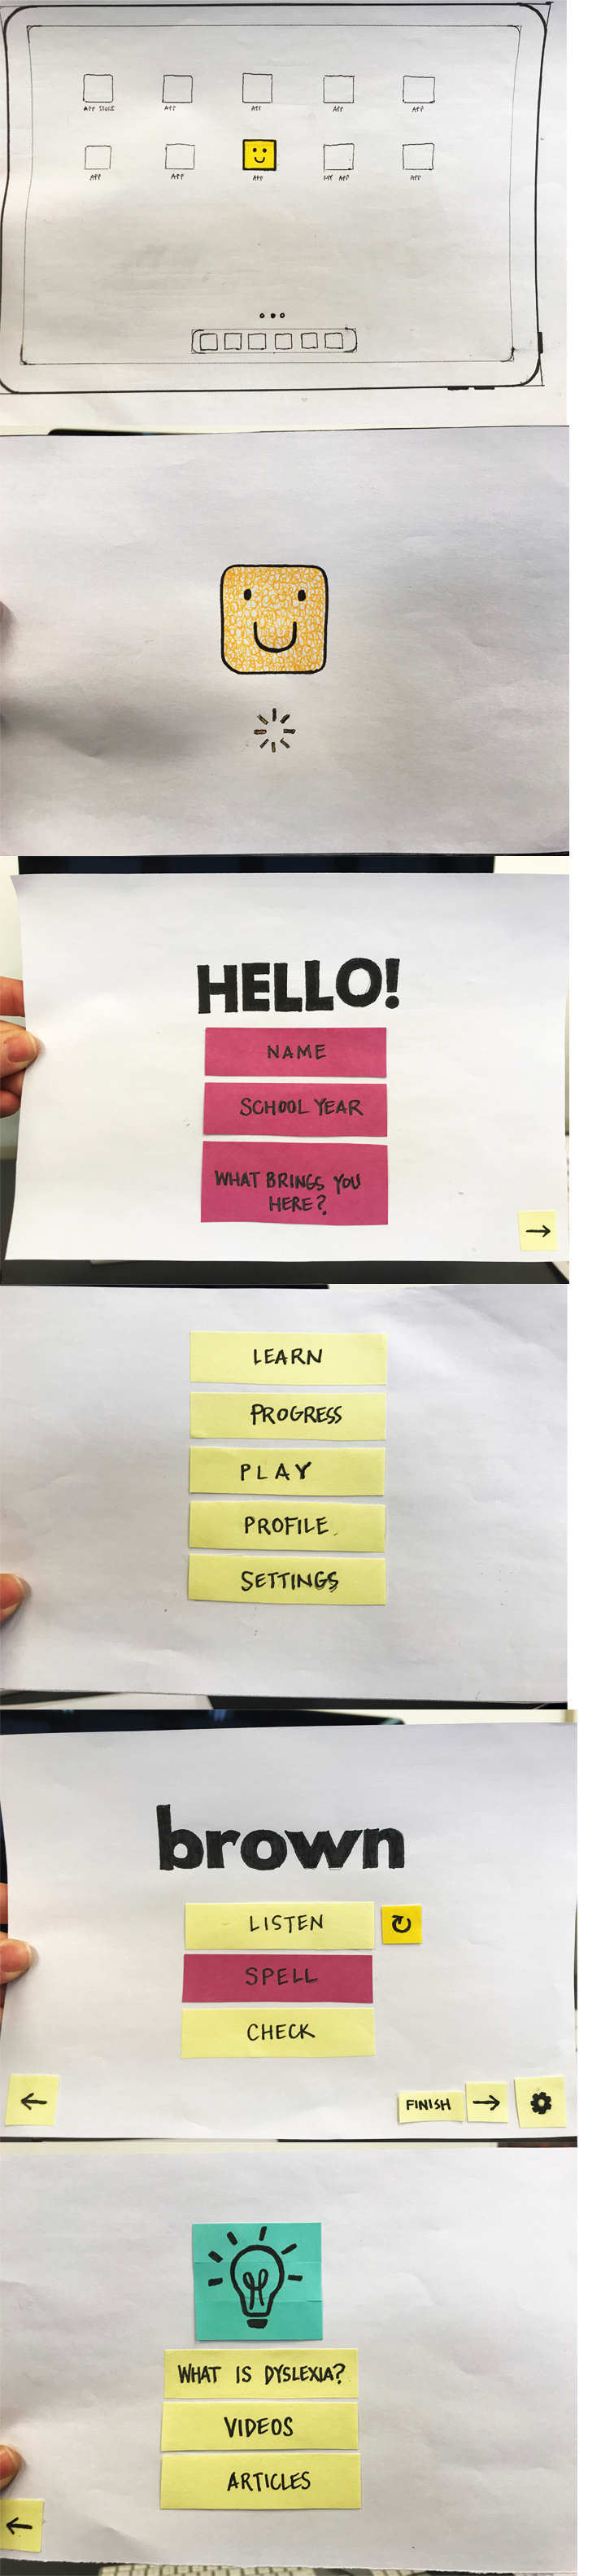 APP STORE
APP
APP
APP
APP
APP
APP
APP
MY APP
APP
HELLO!
NAME
SCHOOL YEAR
WHAT BRINGS YOU
HERE?
LEARN
PROGRESS
PLAY
PROFILE
SETTINGS
brown
LISTEN
SPELL
CHECK
FINISH
WHAT IS DYSLEXIA?
VIDEOS
ARTICLES